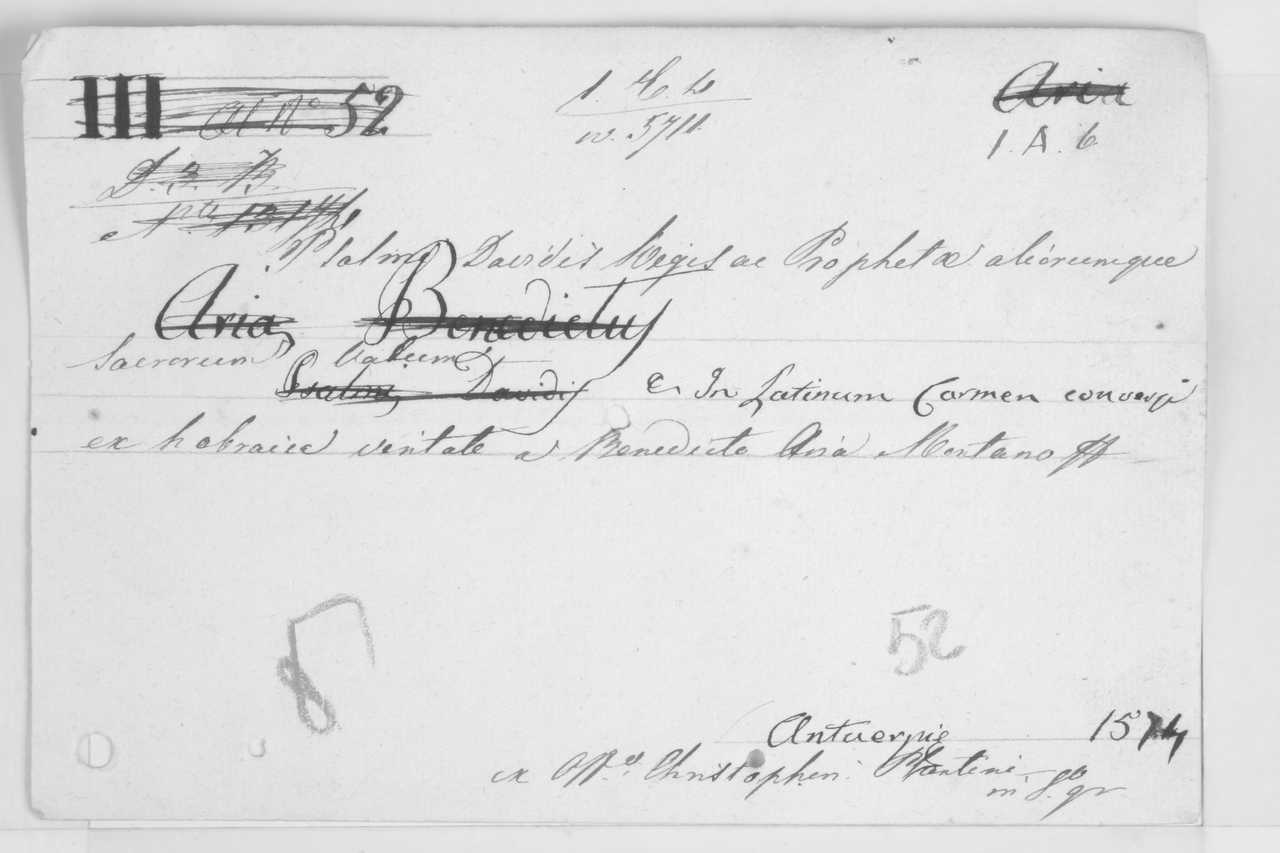 III al N.º 52
1. H. b
n. 5711.
Aria
1. A. b
D. 3. B.
Psalmi Davidis Regis ac Prophetæ aliorumque
Aria, Benedictus
sacrorum Vatum,
Psalmi Davidis & In Latinum Carmen conversi
ex hebraica veritate a Benedicto Aria Montano ff
8
52
Antuerpię 1574
ex Off.ª Christophori Plantini
in 8.º gr